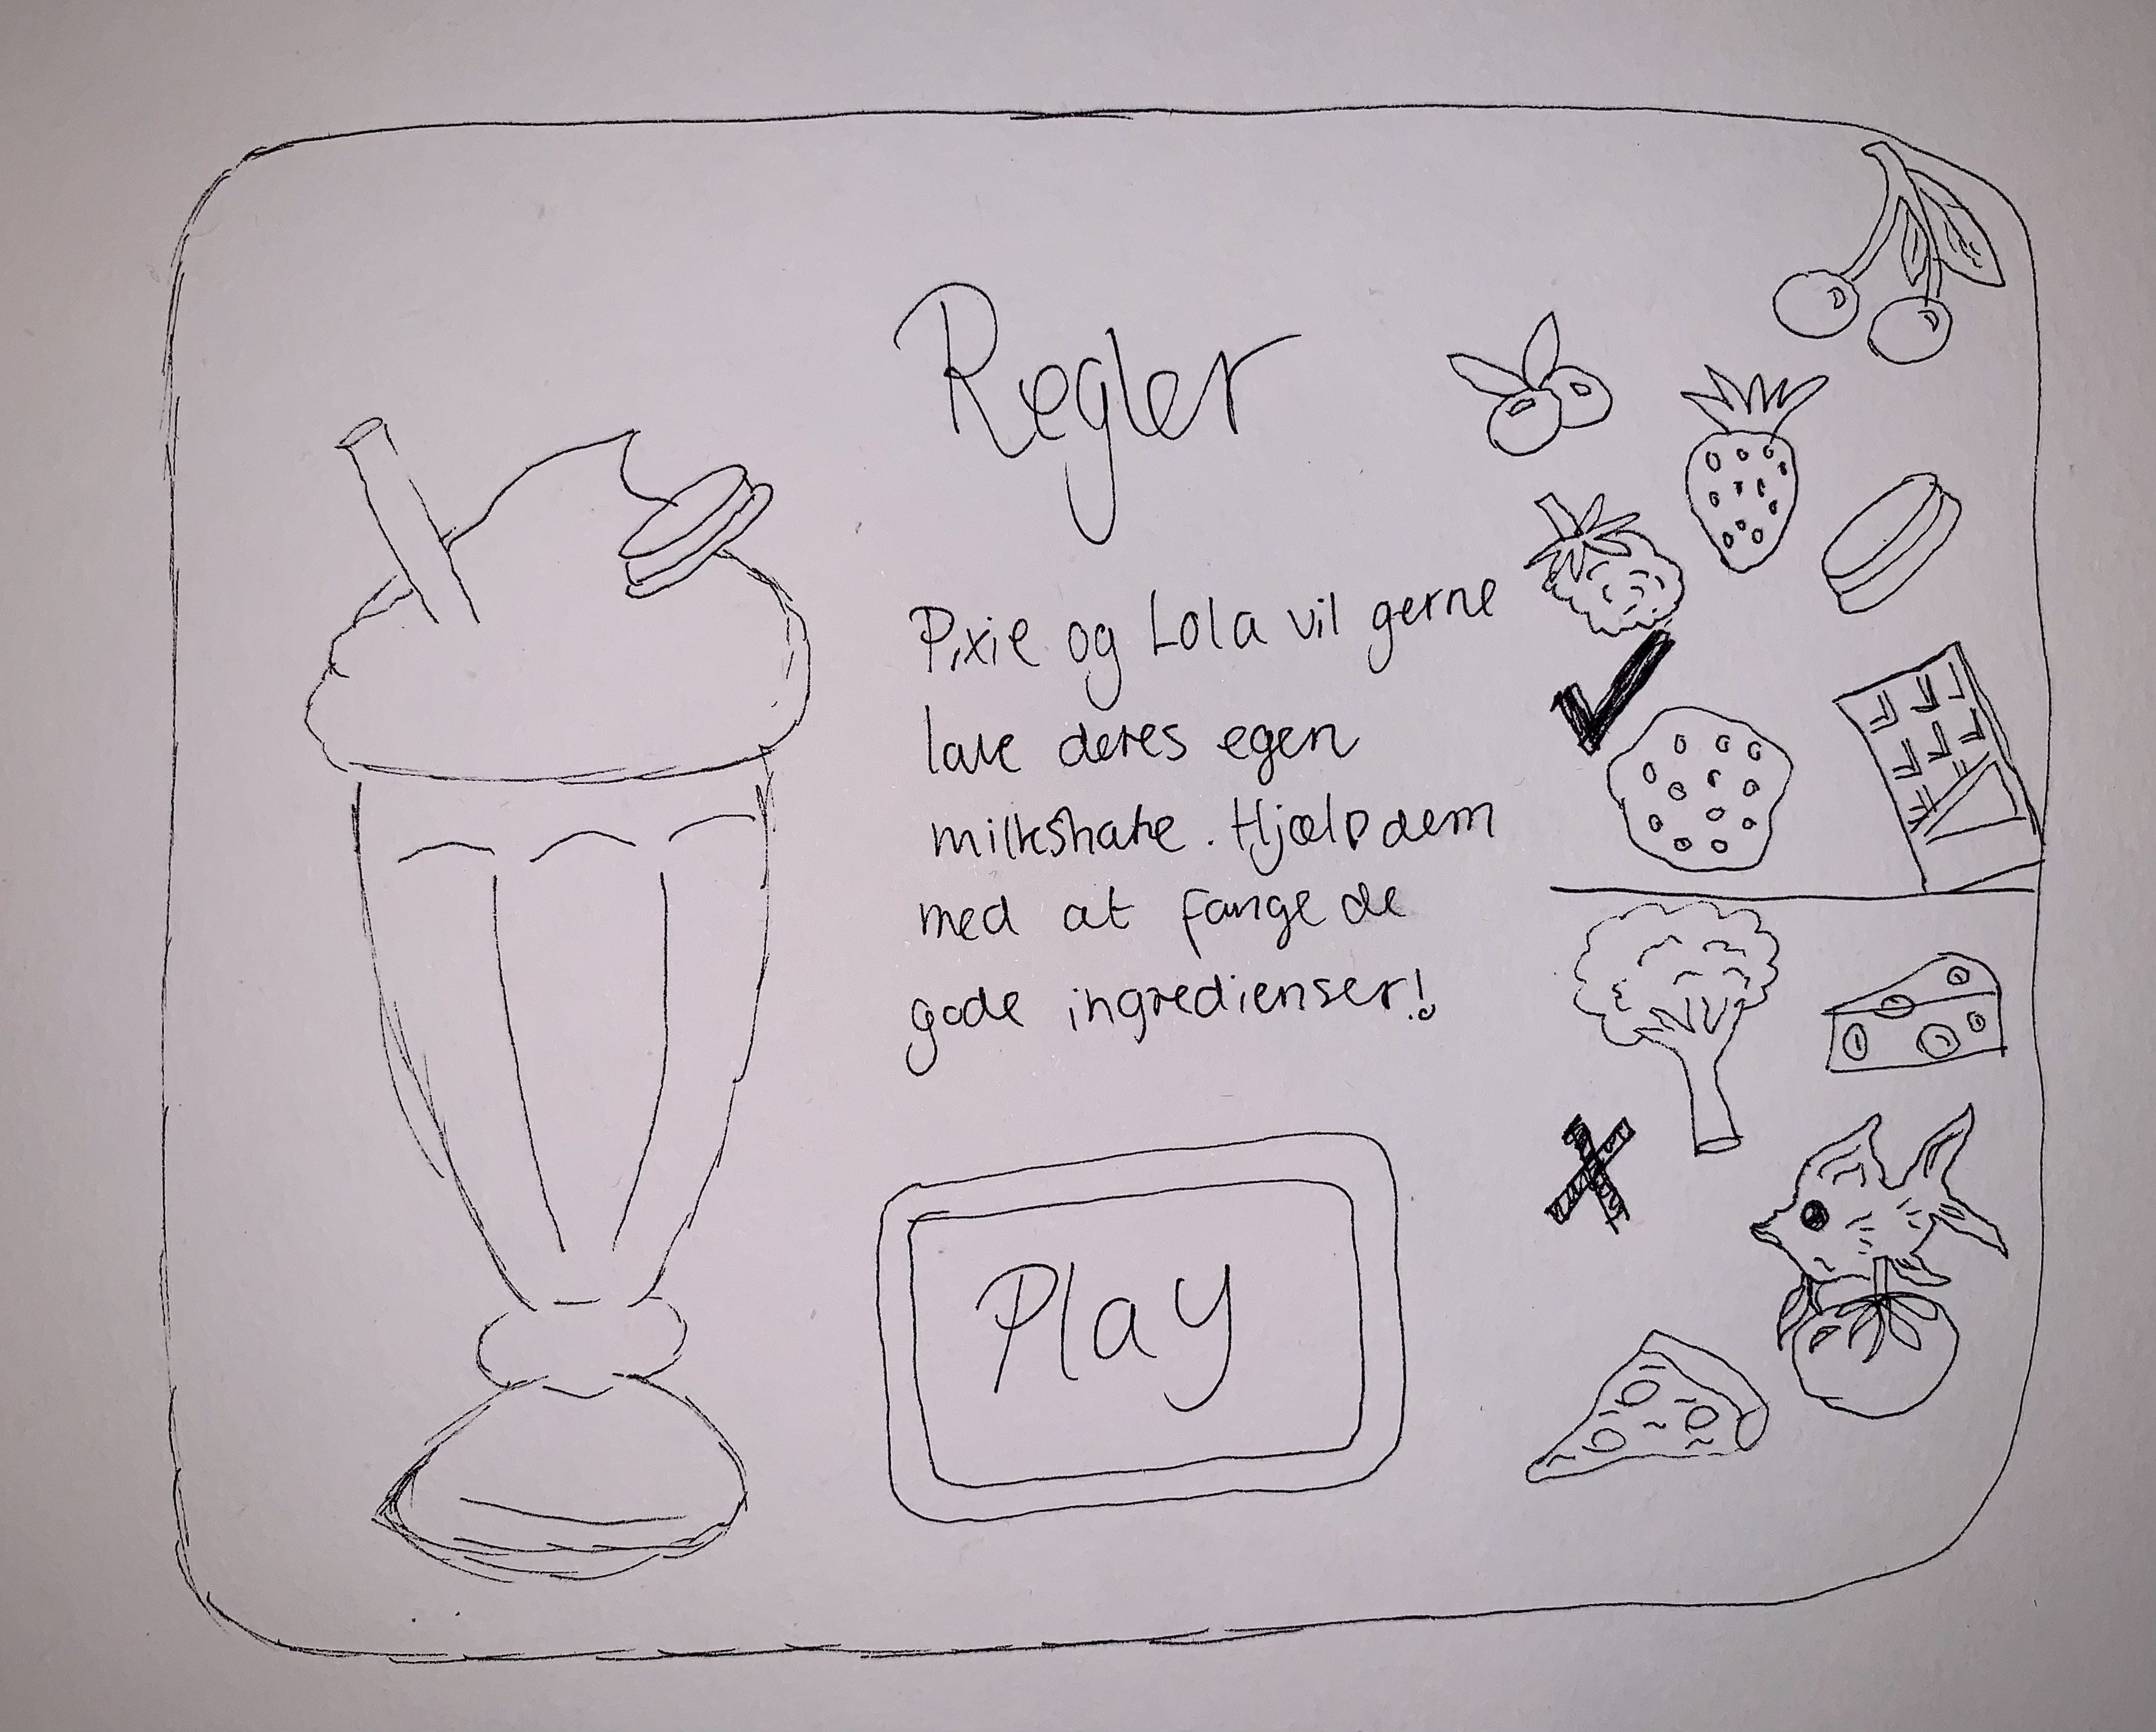 Regler
Pixie og Lola vil gerne
lave deres egen
milkshake. Hjælp dem
med at fange de
gode ingredienser!
Play